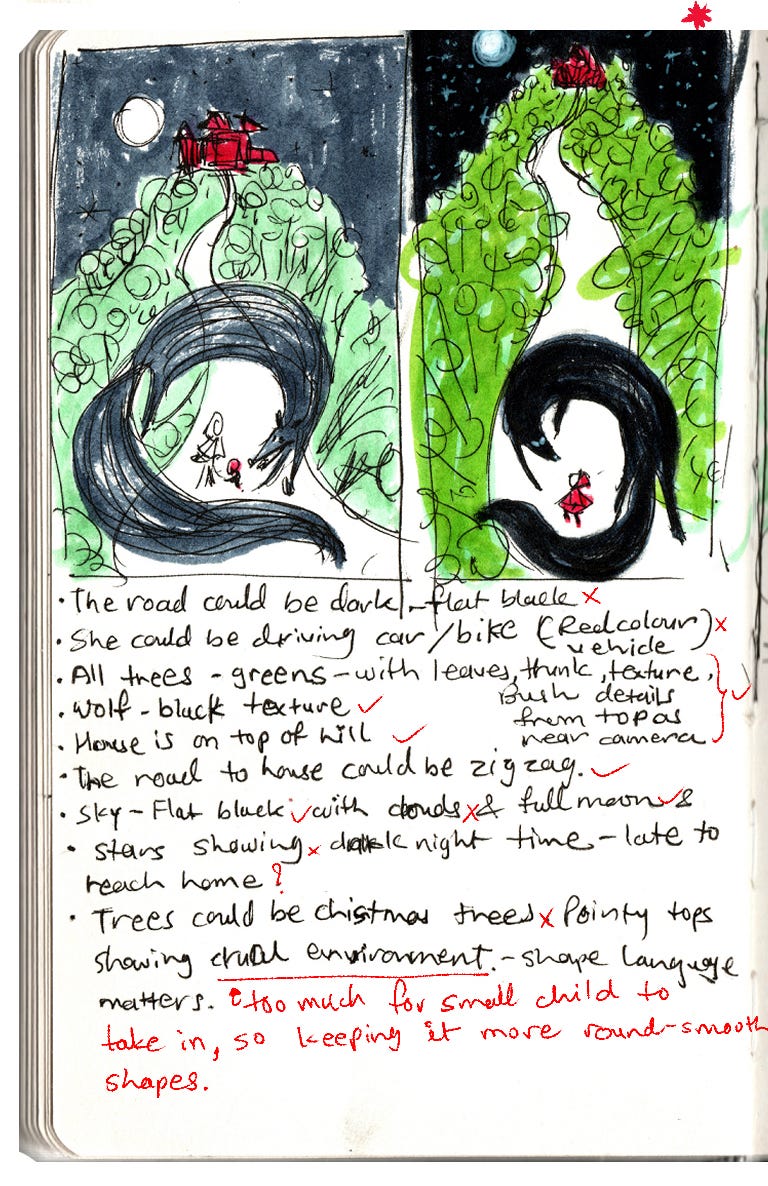 • The road could be dark - flat black ×
• She could be driving car/bike (Red colour) ×
vehicle
• All trees - greens - with leaves, trunk, texture,
Bush details
• Wolf - black texture ✓
from top as
• House is on top of hill ✓
near camera ✓
• The road to house could be zigzag. ✓
• Sky - Flat black ✓ with clouds × & full moon ✓ &
• stars showing × dark night time - late to
reach home ?
• Trees could be chistmas trees × Pointy tops
showing crual environment. - shape language
matters. • too much for small child to
take in, so keeping it more round-smooth
shapes.